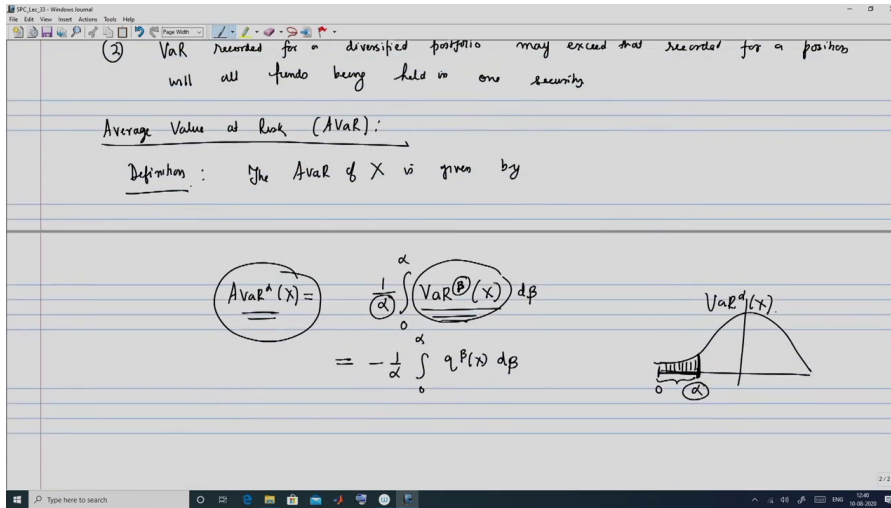 SPC_Lec_33 - Windows Journal
File Edit View Insert Actions Tools Help
Page Width
② VaR recorded for a diversified portfolio may exceed that recorded for a position
will all funds being held in one security
Average Value at Risk (AVaR):
Definition : The AVaR of X is given by
AVaR^α (X) = 1/α ∫_0^α VaR^β (X) dβ
= - 1/α ∫_0^α q^β(X) dβ
VaR^α(X).
0 α
2/2
Type here to search
ENG
12:40
10-08-2020